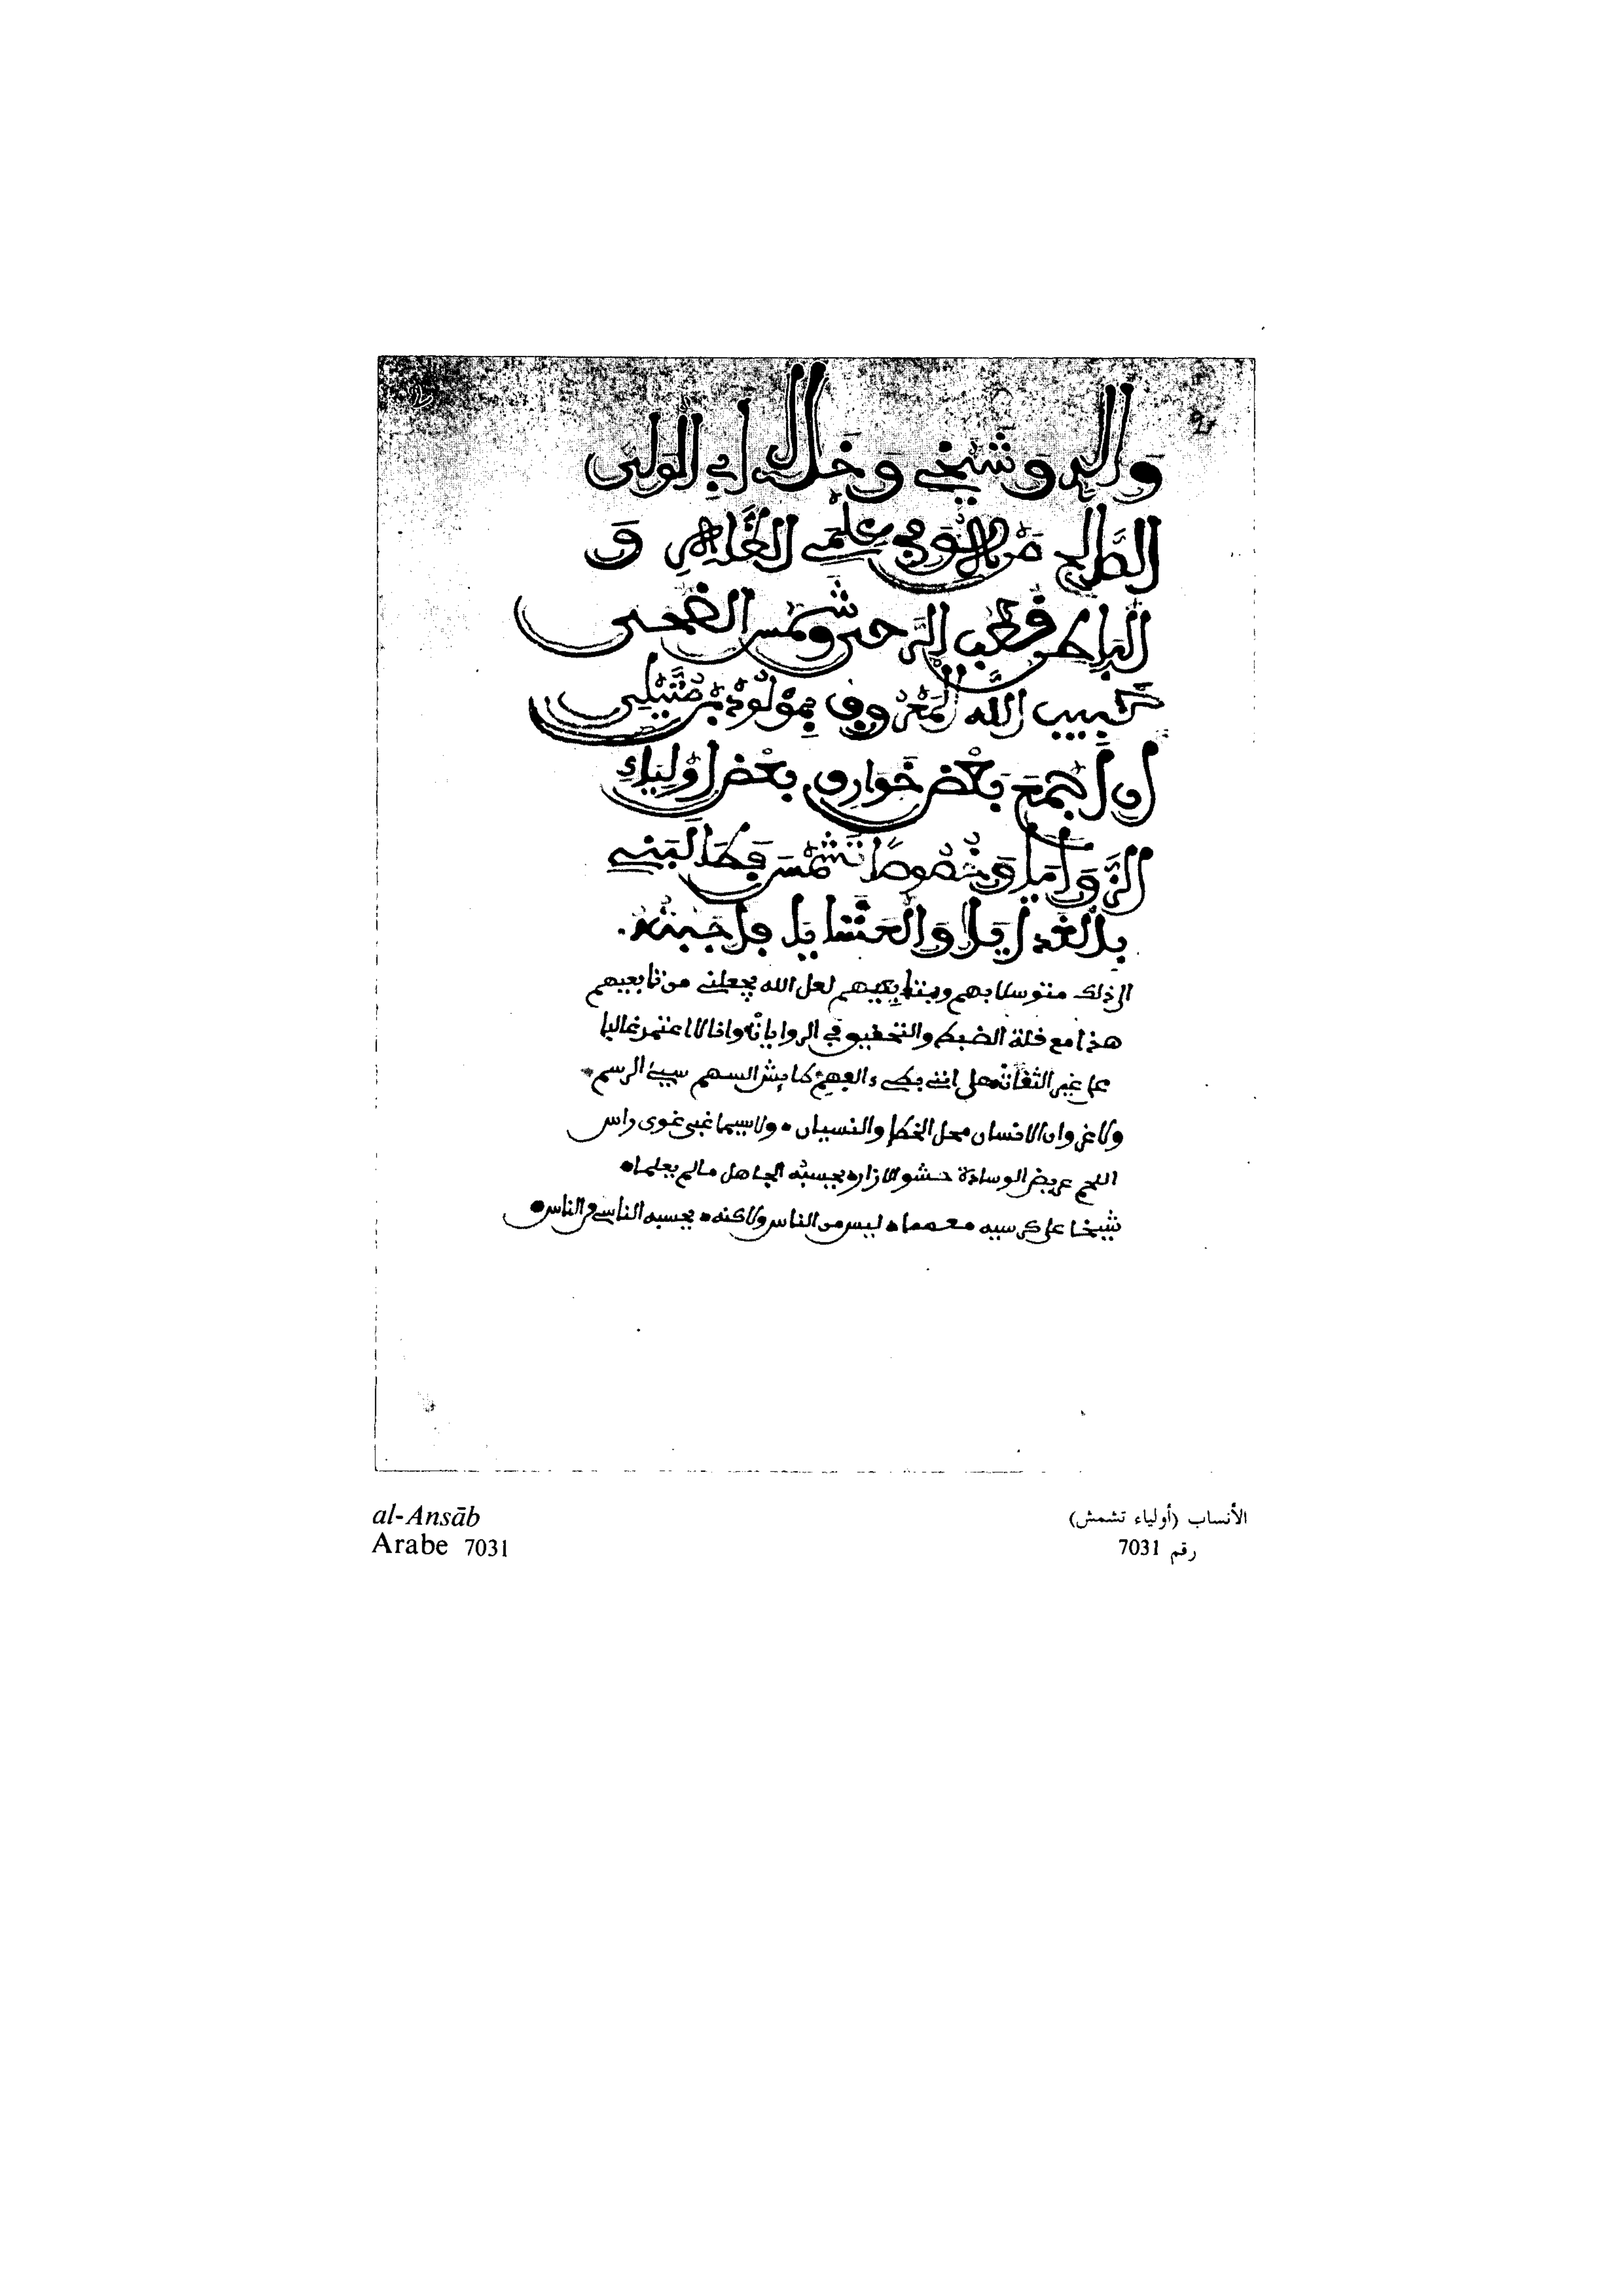 والدي وشيخي وخالي أبي المولى
الصالح من بالفوق في علمي الظاهر و
الباطن قطب الرحى وشمس الضحى
حبيب الله المعروف بمولود بن متيلي
أن أجمع بعض خوارق بعض أولياء
الزوايا وخصوصا تشمس فطالبني
بالغدايا والعشايا فأجبته.
الى ذلك متوسلا بهم وبمتابعيهم لعل الله يجعلني من تابعيهم
هذا مع قلة الضبط والتحقيق في الروايات وانا لا اعتمد غالبا
على غير الثقات على انني بطيء الفهم كايش السهم سيئ الرسم
ولا غرو ان الانسان محل الخطإ والنسيان ولا سيما غبي غوى راس
اللخم عريض الوسادة حشو الازاره يحسبه الجاهل مالم يعلما
شيخا على كرسيه معمما ليس من الناس ولاكنه يحسبه الناس من الناس
al-Ansāb
Arabe 7031
الأنساب (أولياء تشمش)
رقم 7031